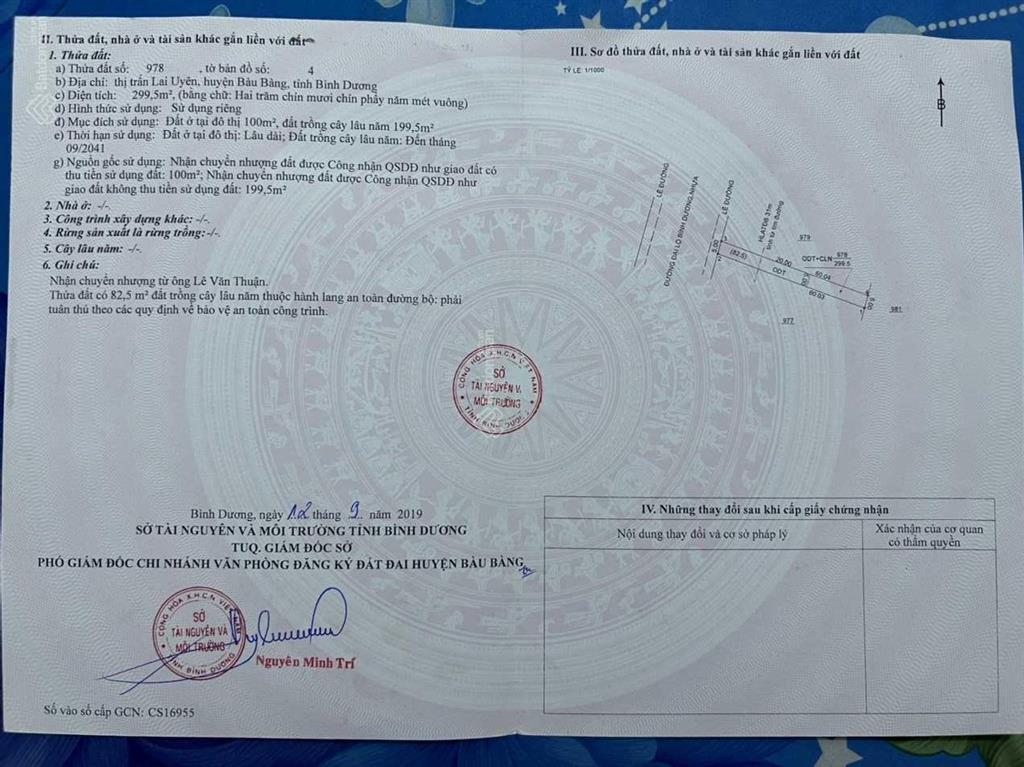 II. Thửa đất, nhà ở và tài sản khác gắn liền với đất
1. Thửa đất:
a) Thửa đất số: 978 , tờ bản đồ số: 4
b) Địa chỉ: thị trấn Lai Uyên, huyện Bàu Bàng, tỉnh Bình Dương
c) Diện tích: 299,5m², (bằng chữ: Hai trăm chín mươi chín phẩy năm mét vuông)
d) Hình thức sử dụng: Sử dụng riêng
đ) Mục đích sử dụng: Đất ở tại đô thị 100m², đất trồng cây lâu năm 199,5m²
e) Thời hạn sử dụng: Đất ở tại đô thị: Lâu dài; Đất trồng cây lâu năm: Đến tháng
09/2041
g) Nguồn gốc sử dụng: Nhận chuyển nhượng đất được Công nhận QSDĐ như giao đất có
thu tiền sử dụng đất: 100m²; Nhận chuyển nhượng đất được Công nhận QSDĐ như
giao đất không thu tiền sử dụng đất: 199,5m²
2. Nhà ở: -/-.
3. Công trình xây dựng khác: -/-.
4. Rừng sản xuất là rừng trồng: -/-.
5. Cây lâu năm: -/-.
6. Ghi chú:
Nhận chuyển nhượng từ ông Lê Văn Thuận.
Thửa đất có 82,5 m² đất trồng cây lâu năm thuộc hành lang an toàn đường bộ: phải
tuân thủ theo các quy định về bảo vệ an toàn công trình.
CỘNG HÒA X.H.C.N VIỆT NAM
SỞ
TÀI NGUYÊN VÀ
MÔI TRƯỜNG
TỈNH BÌNH DƯƠNG
Bình Dương, ngày 12 tháng 9 năm 2019
SỞ TÀI NGUYÊN VÀ MÔI TRƯỜNG TỈNH BÌNH DƯƠNG
TUQ. GIÁM ĐỐC SỞ
PHÓ GIÁM ĐỐC CHI NHÁNH VĂN PHÒNG ĐĂNG KÝ ĐẤT ĐAI HUYỆN BÀU BÀNG
CỘNG HÒA X.H.C.N VIỆT NAM
SỞ
TÀI NGUYÊN VÀ
MÔI TRƯỜNG
TỈNH BÌNH DƯƠNG
Nguyễn Minh Trí
Số vào sổ cấp GCN: CS16955
III. Sơ đồ thửa đất, nhà ở và tài sản khác gắn liền với đất
TỶ LỆ: 1/1000
B
LỀ ĐƯỜNG
ĐƯỜNG ĐẠI LỘ BÌNH DƯƠNG NHỰA
LỀ ĐƯỜNG
HLATĐB 31m
tính từ tim đường
979
5.00
(82.5)
20.00
ODT
ODT+CLN
978
299.5
60.04
5.00
60.03
5.00
977
981
IV. Những thay đổi sau khi cấp giấy chứng nhận
Nội dung thay đổi và cơ sở pháp lý
Xác nhận của cơ quan
có thẩm quyền